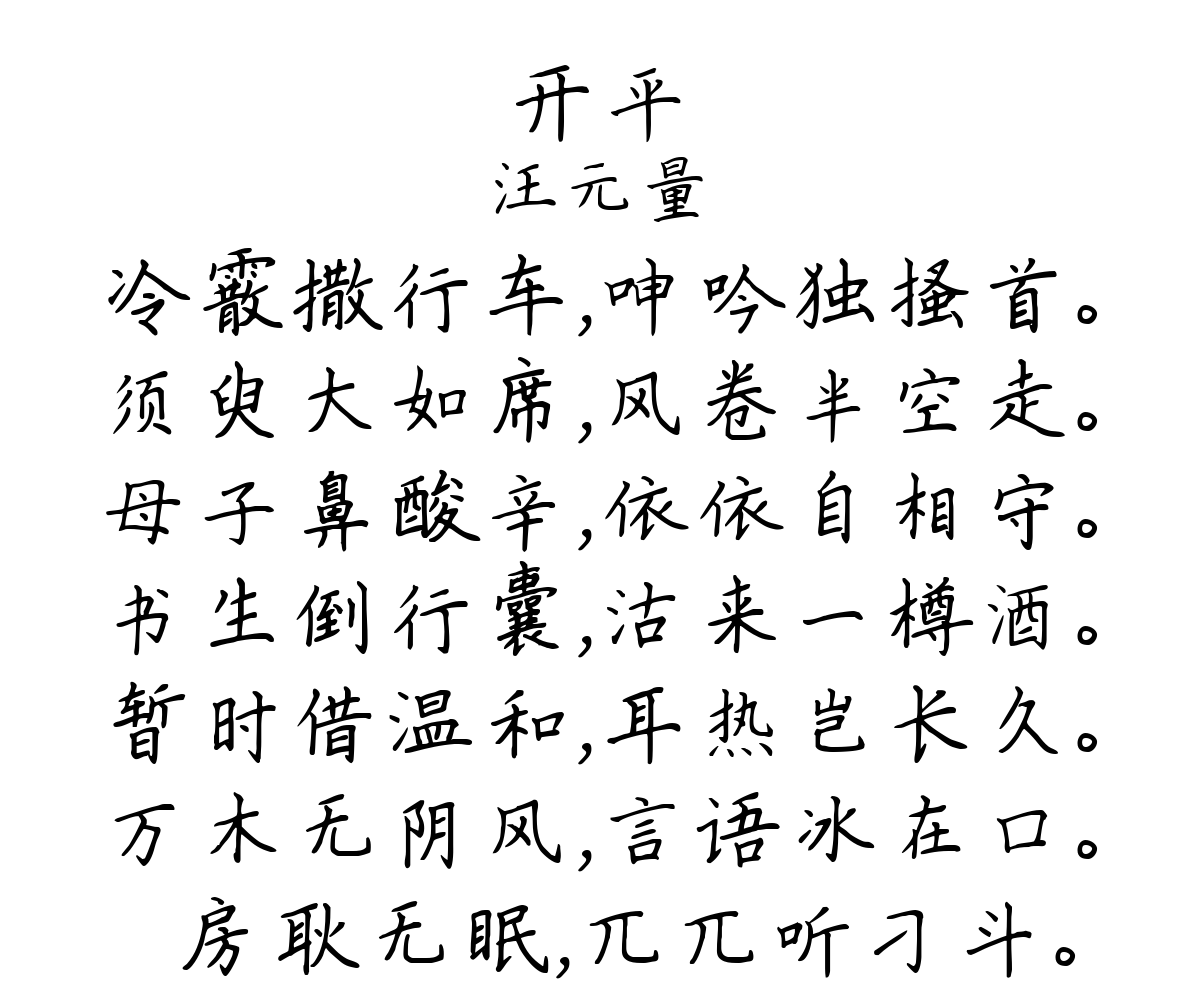 开平
汪元量
冷霰撒行车,呻吟独搔首。
须臾大如席,风卷半空走。
母子鼻酸辛,依依自相守。
书生倒行囊,沽来一樽酒。
暂时借温和,耳热岂长久。
万木无阴风,言语冰在口。
房耿无眠,兀兀听刁斗。